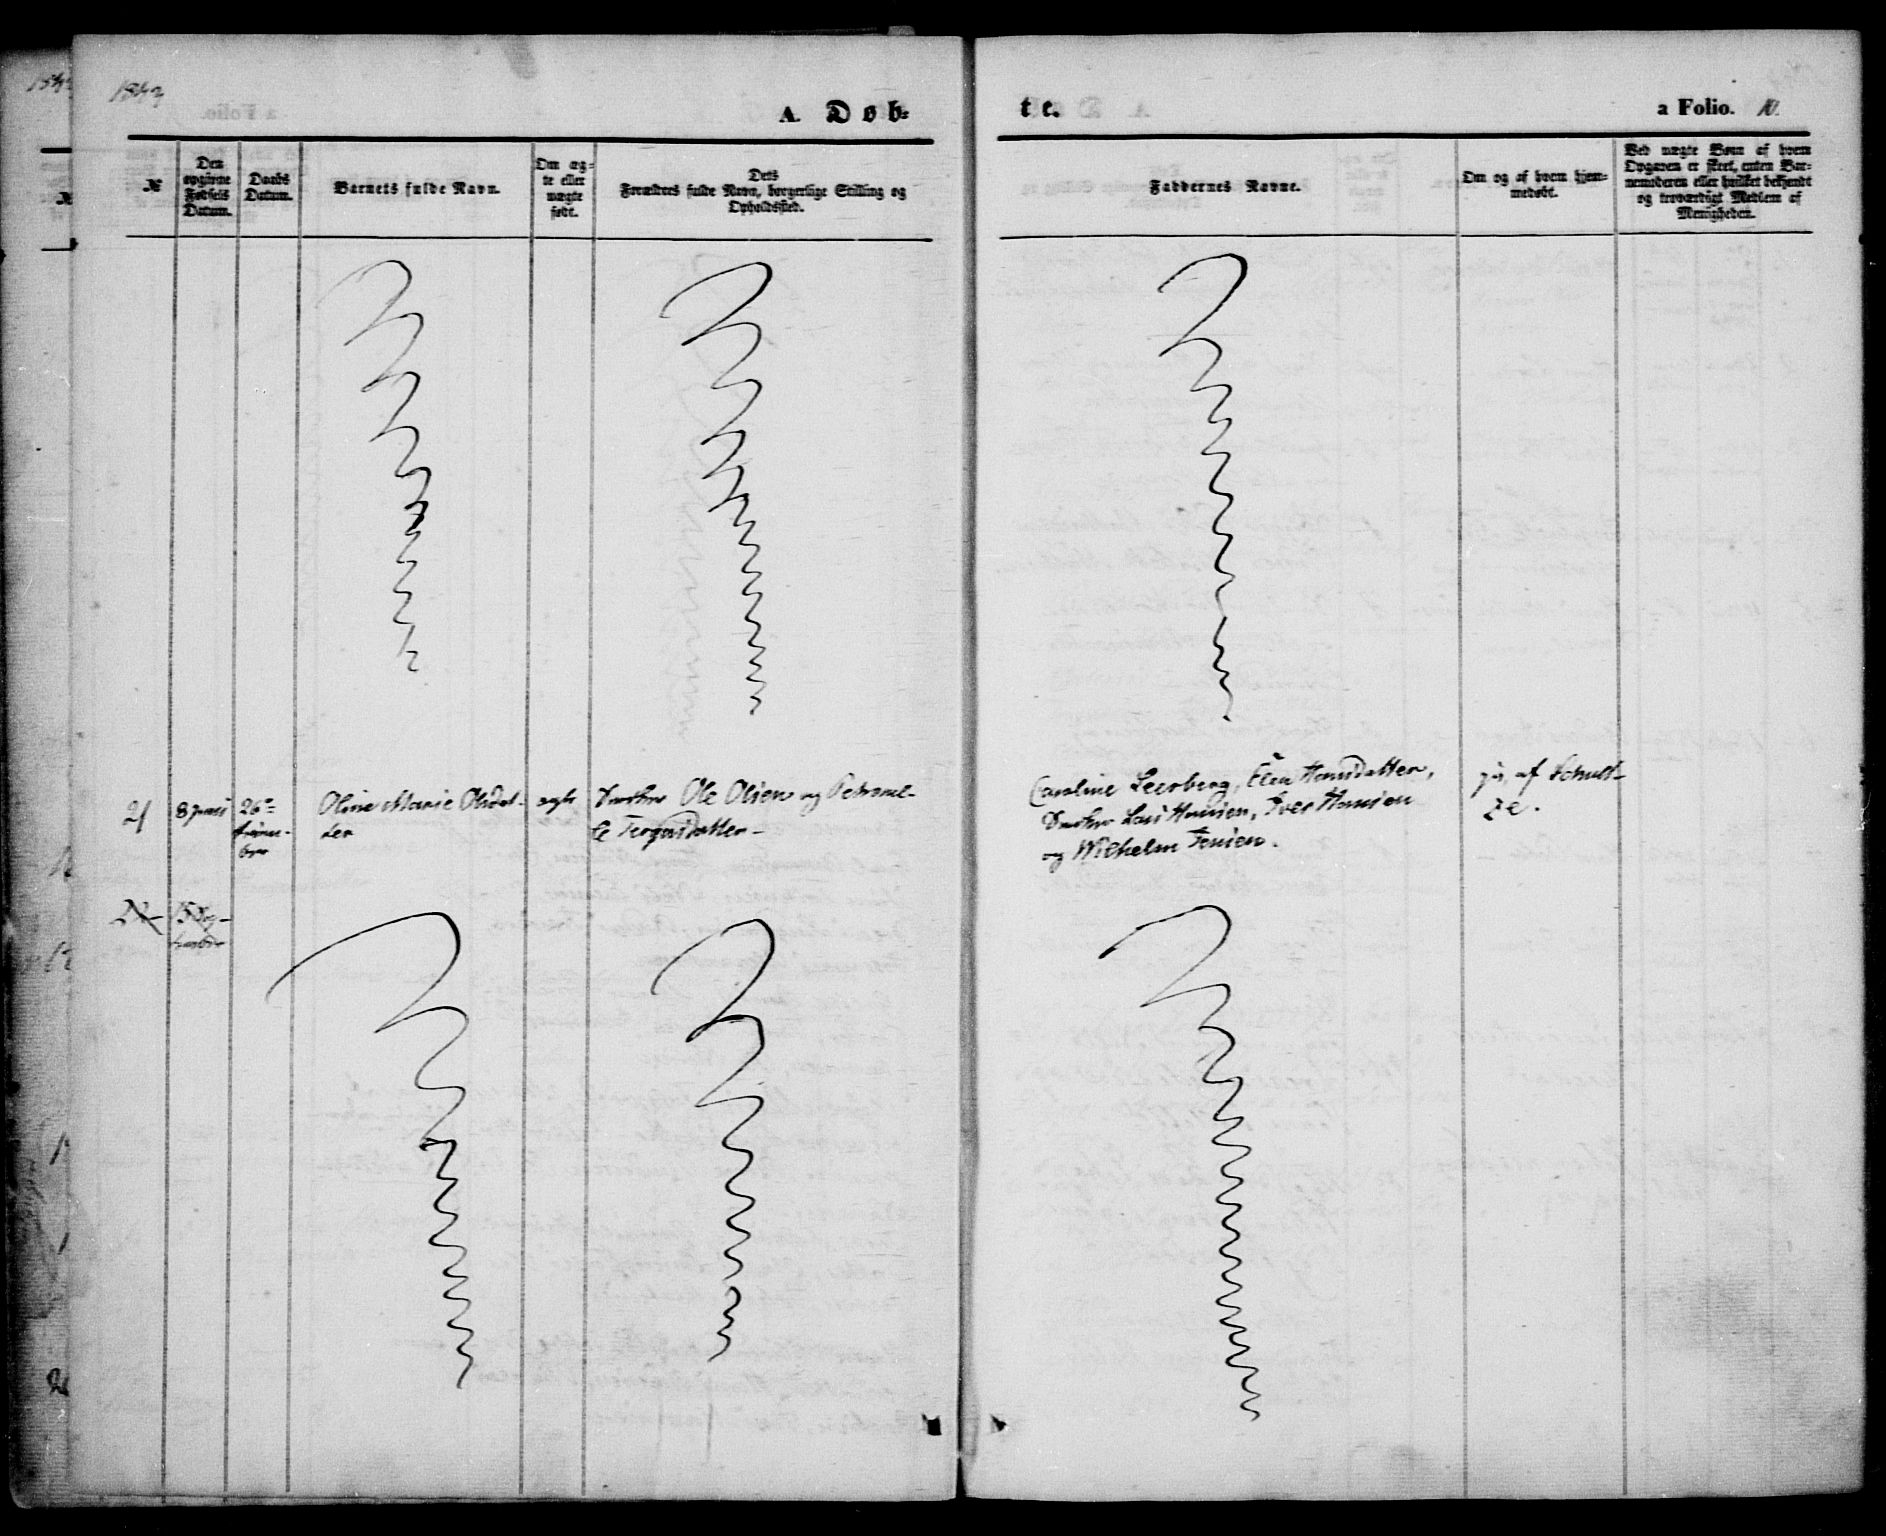 1843
A. Døb-
te.
a Folio. 10.
№
Den
opgivne
Fødsels
Datum.
Daabs
Datum.
Barnets fulde Navn.
Om æg-
te eller
uægte
født.
Dets
Forældres fulde Navn, borgerlige Stilling og
Opholdssted.
Faddernes Navne.
Om og af hvem hjem-
medøbt.
Ved uægte Børn af hvem
Opgaven er skeet, enten Bar-
nemoderen eller hvilket bekjendt
og troværdigt Medlem af
Menigheden.
21
8 Juni
26
Oline Marie Olsdat-
ter
ægte
Ole Olsen og Petronel-
Caroline Leerberg, Elen Hansdatter,
Lars Hansen, Iver Hansen
og Wilhelm Jensen.
ja, af Schult-
ze.